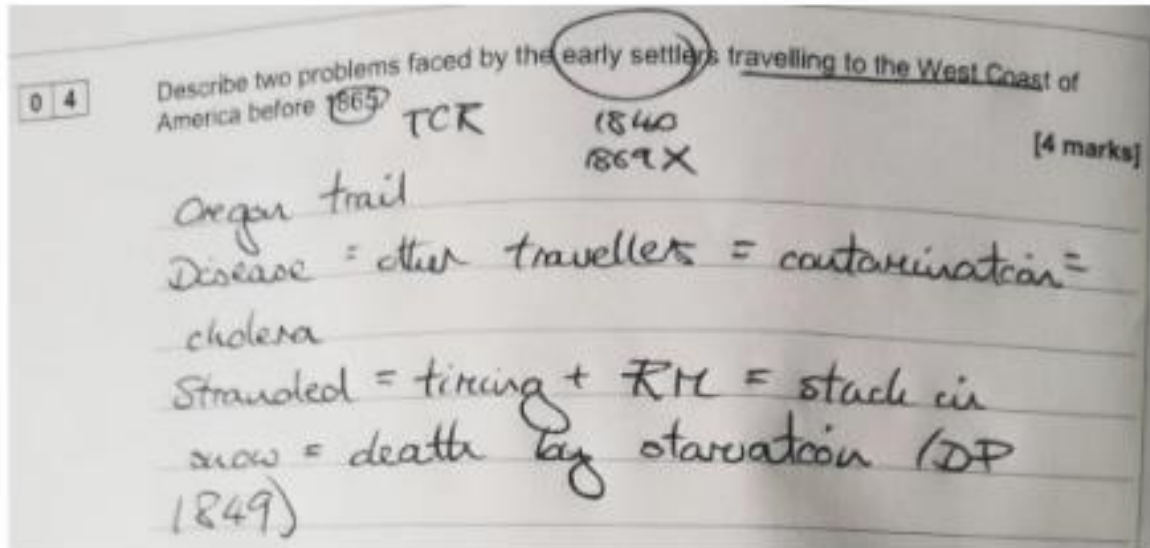 0 4
Describe two problems faced by the early settlers travelling to the West Coast of
America before 1865
TCR
1840
1869 X
[4 marks]
Oregon trail
Disease = other travellers = contamination =
cholera
Stranded = timing + RM = stuck in
snow = death by starvation (DP
1849)